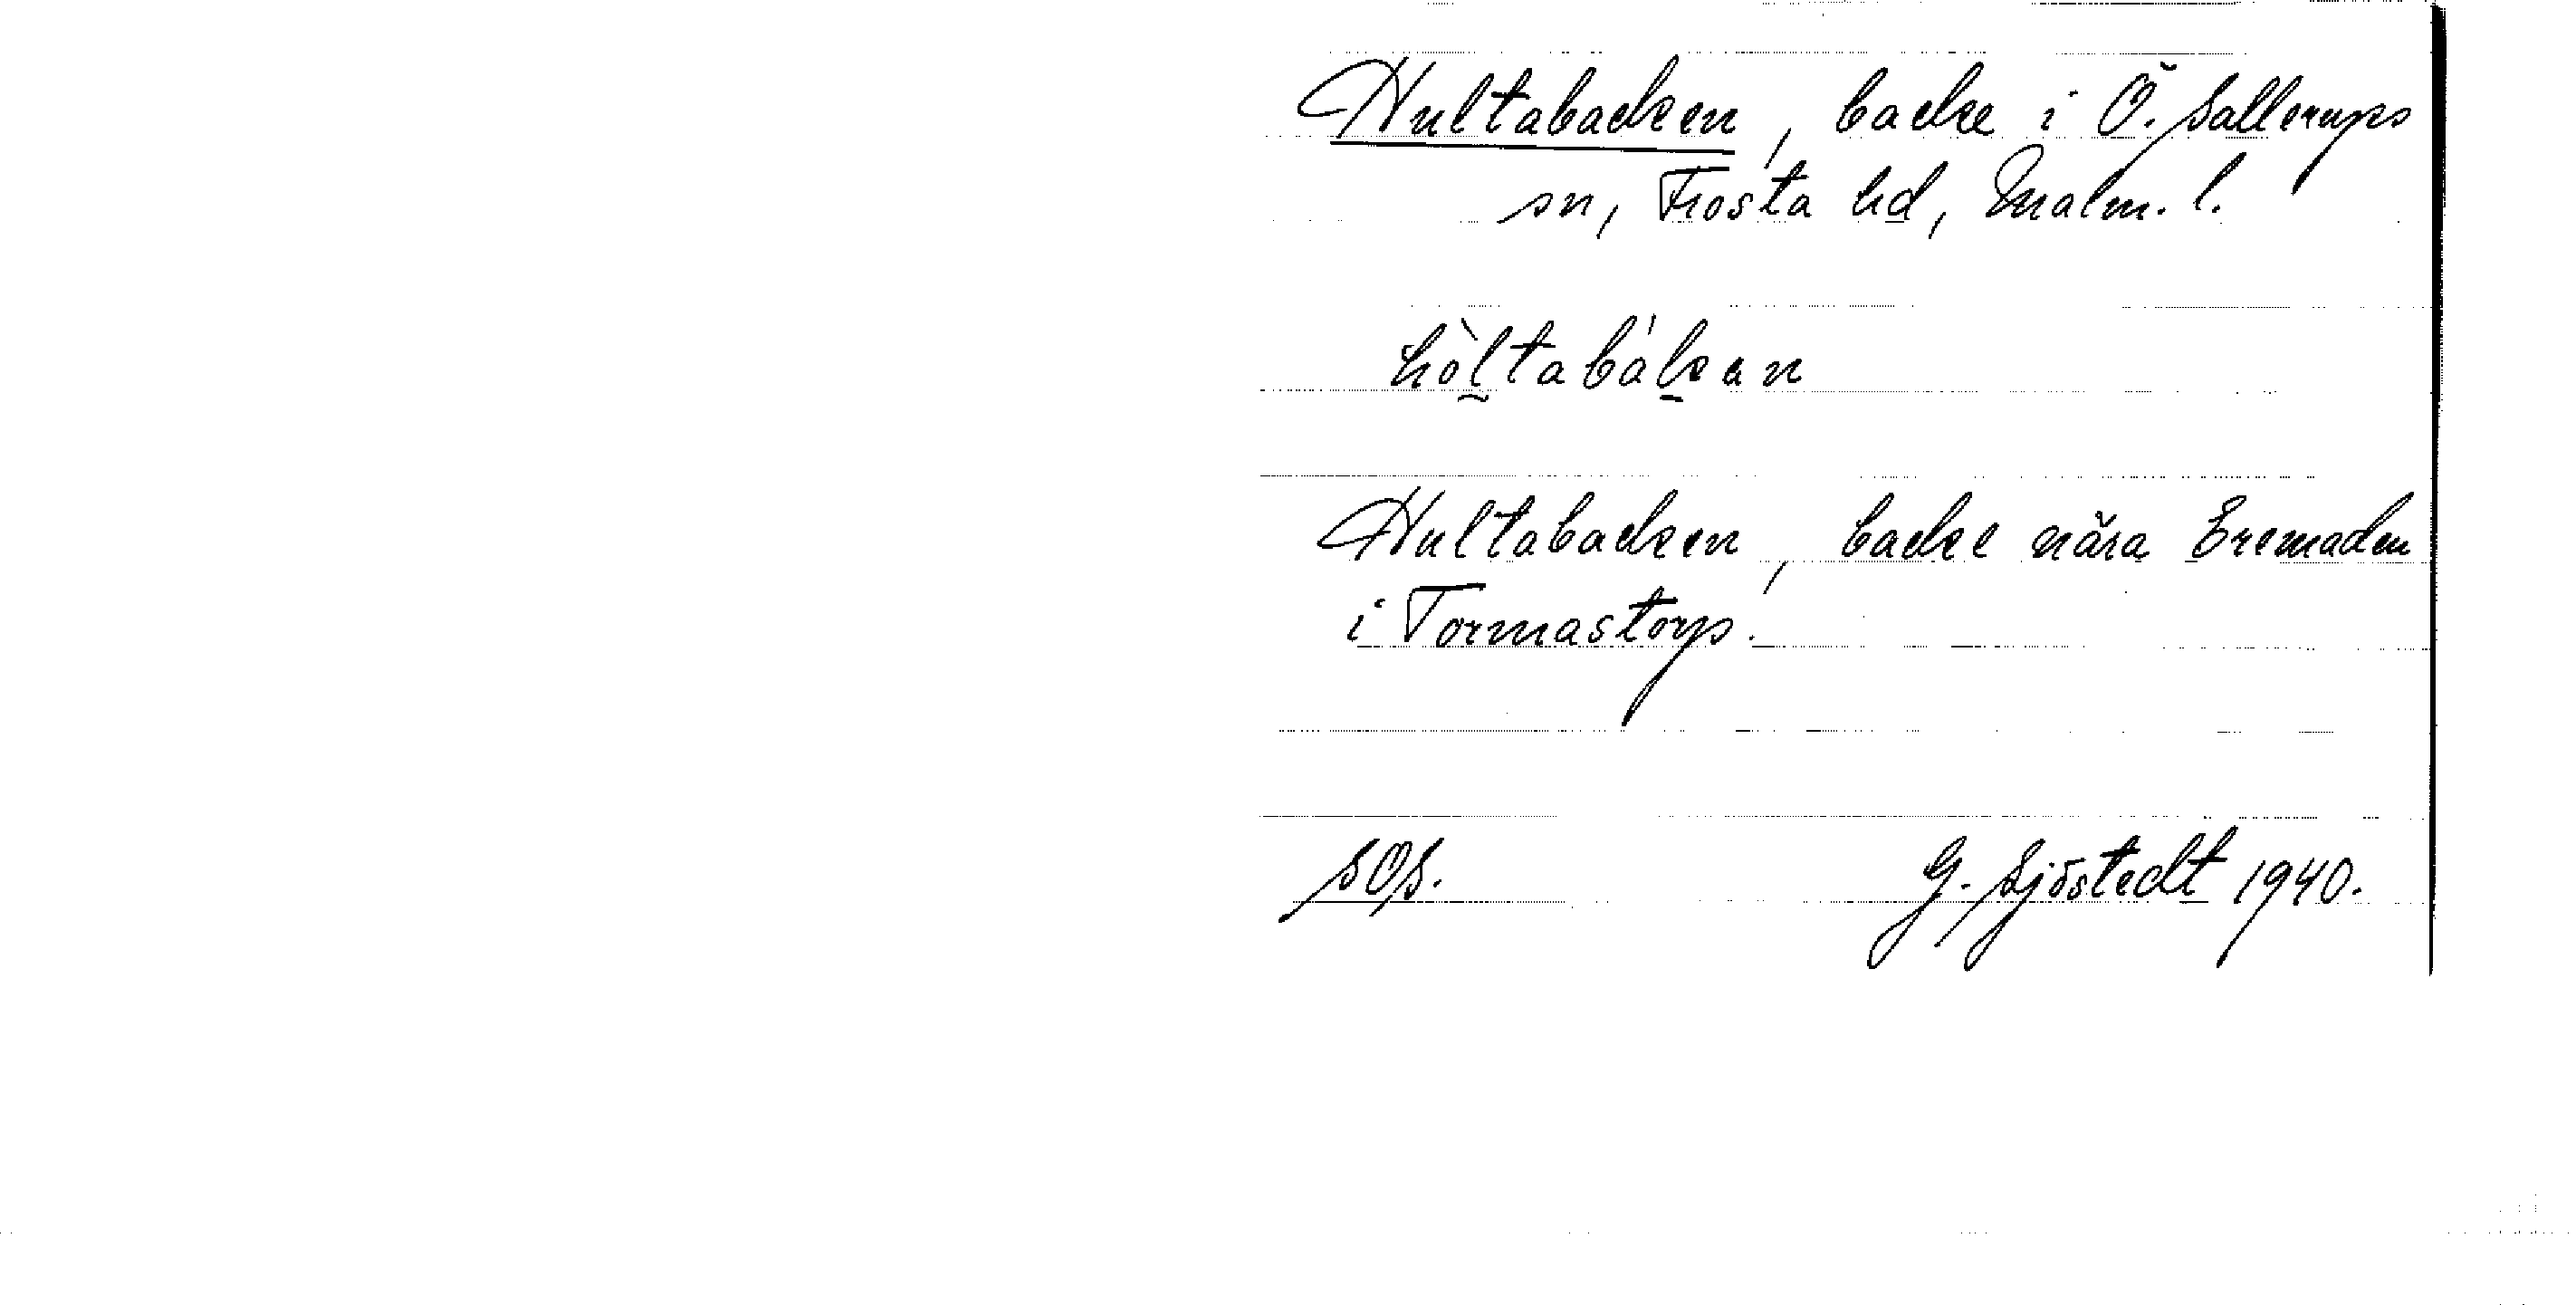 Hultabacken, backe i Ö. Sallerups
sn, Frosta hd, Malm. l.
hòltabákan
Hultabacken, backe nära Eremaden
i Tormastorp.
SOS.
G. Sjöstedt 1940.